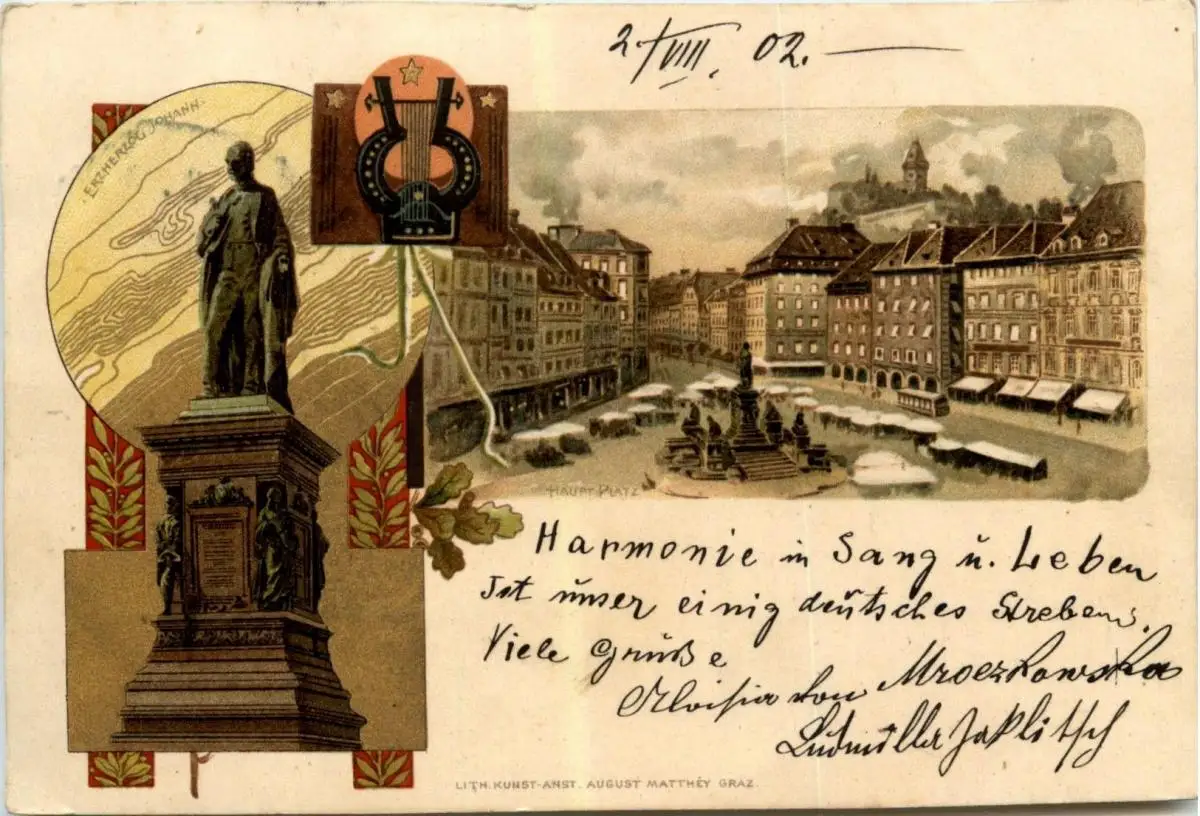 2./VIII. 02.
ERZHERZOG JOHANN
HAUPT PLATZ
Harmonie in Sang u. Leben
Ist unser einig deutsches Streben.
Viele Grüße
Aloisia von Mroczkowska
Ludmilla Jaklitsch
LITH. KUNST-ANST. AUGUST MATTHÉY GRAZ.